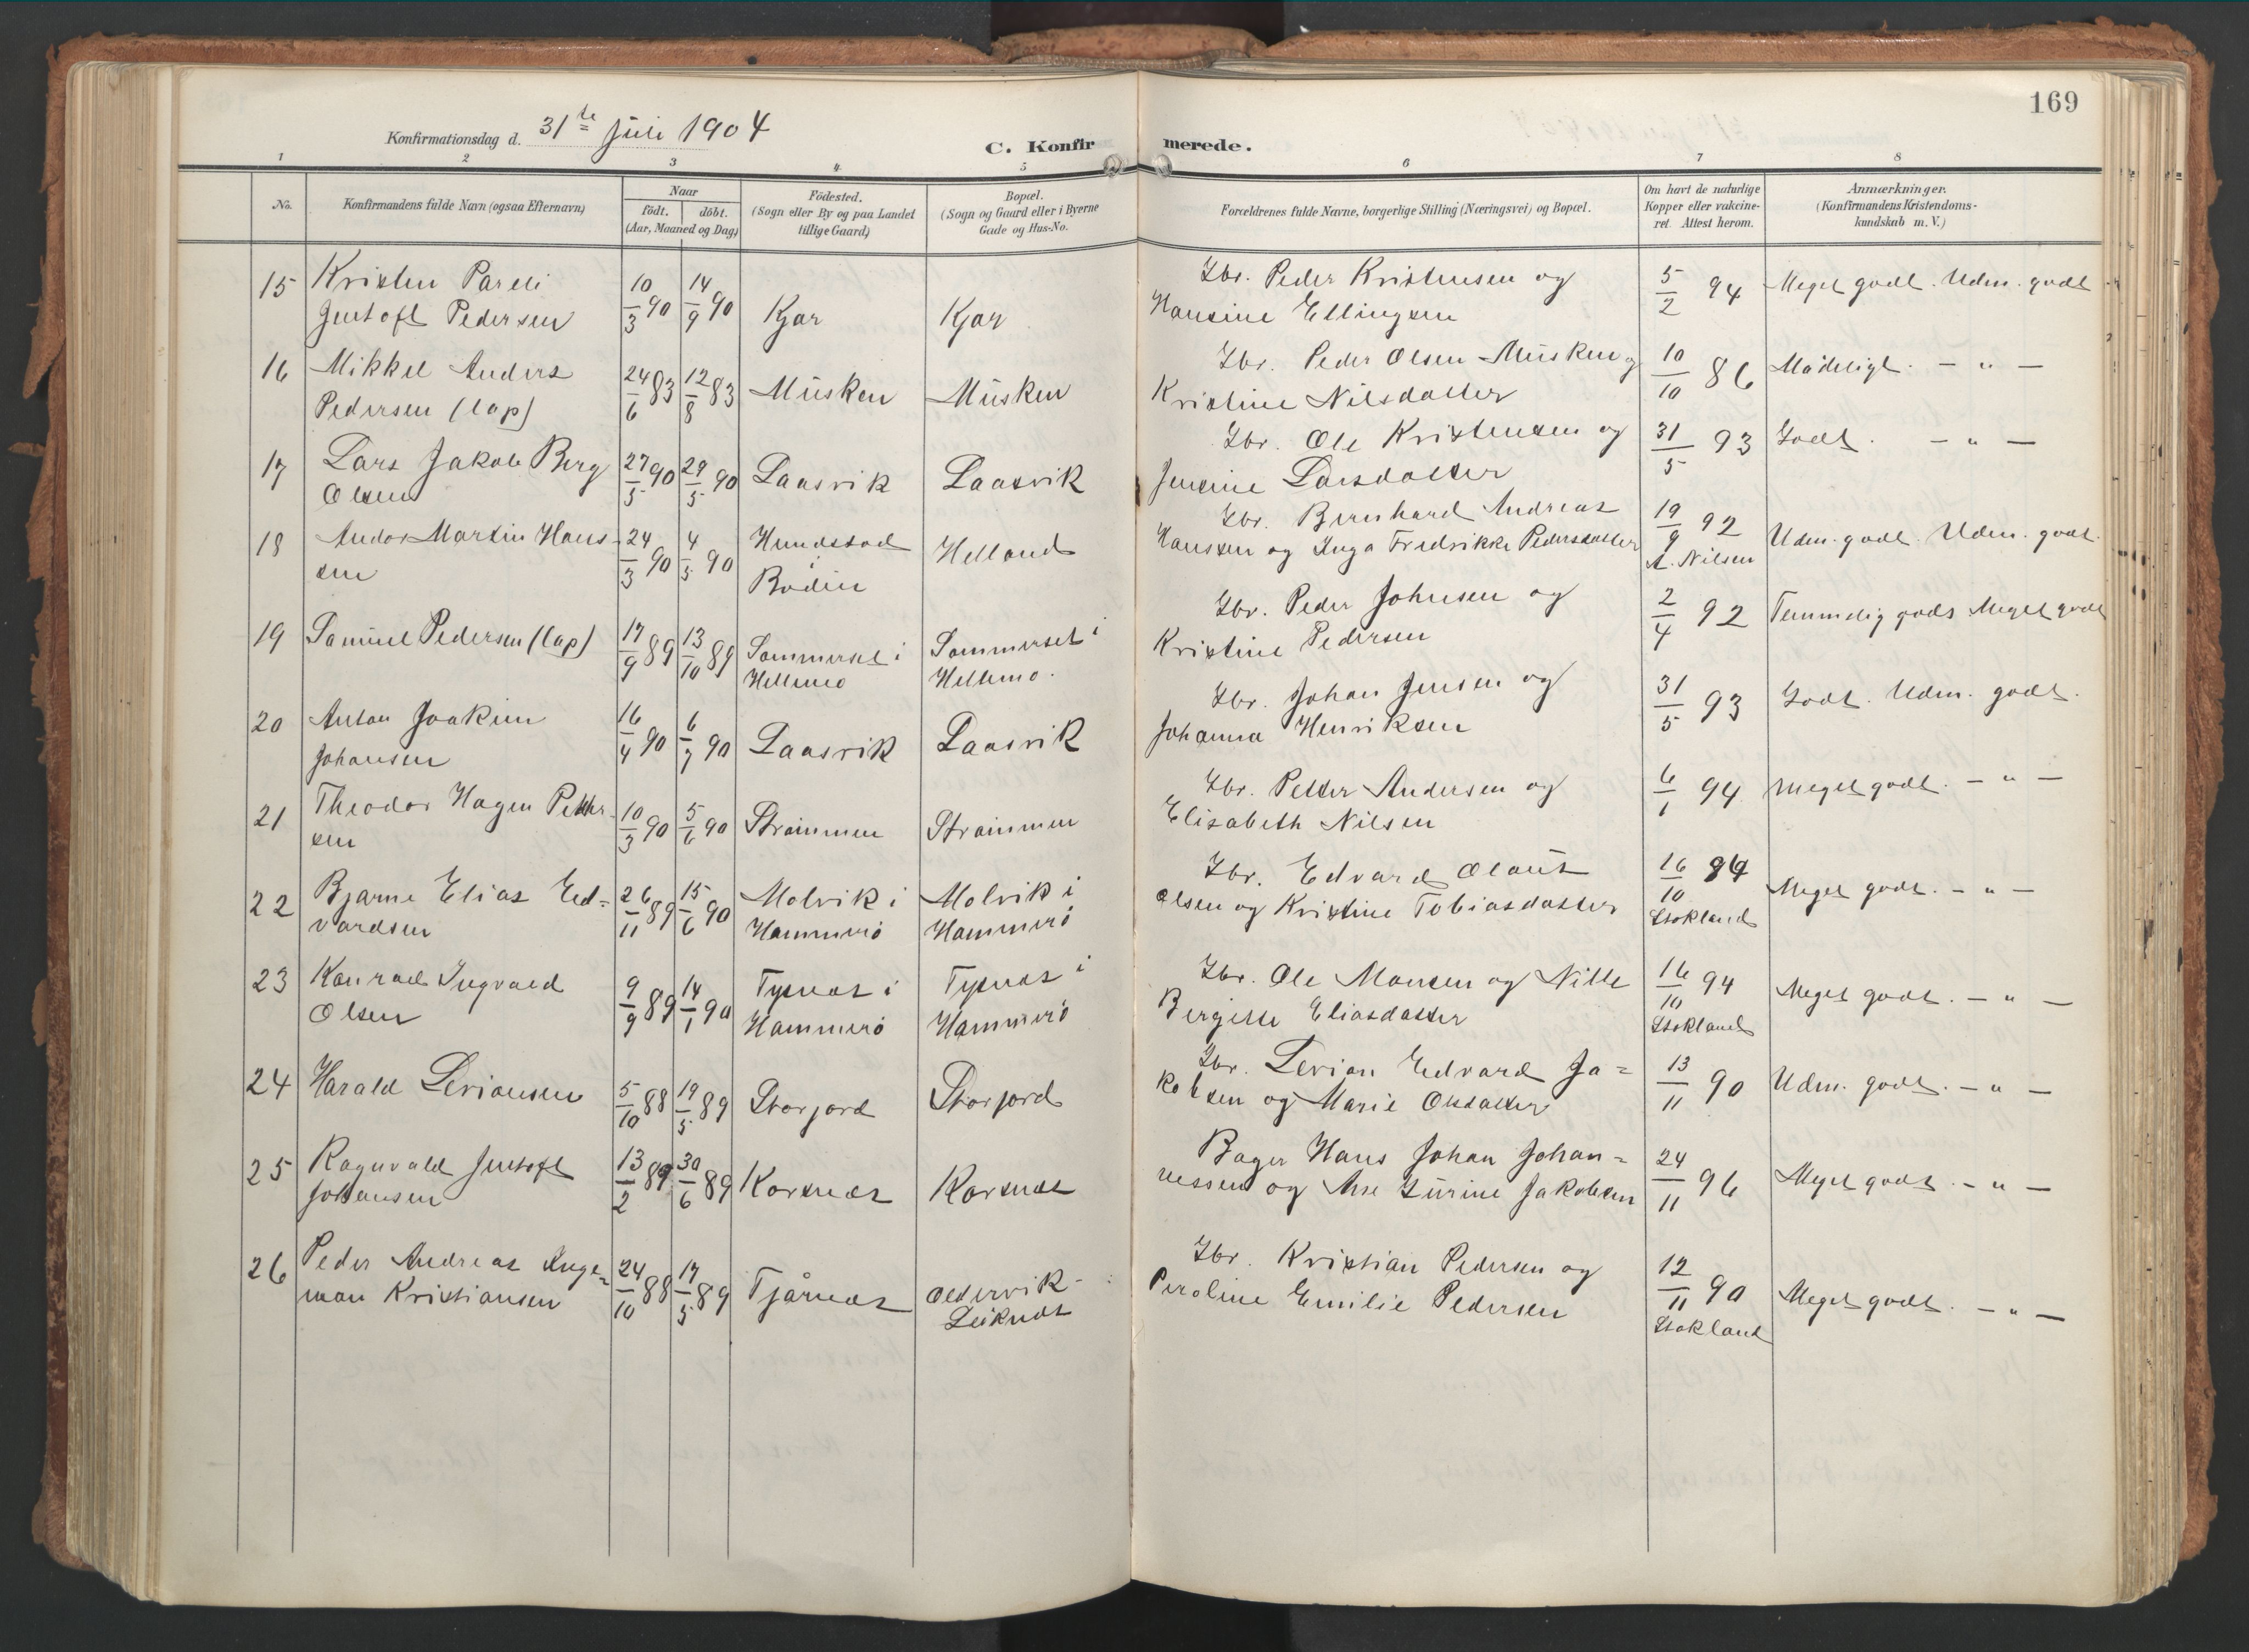 169
Konfirmationsdag d. 31te Juli 1904
C. Konfirmerede.
1 2 3 4 5 6 7 8
No.
Konfirmandens fulde Navn (ogsaa Efternavn)
Naar
födt. döbt.
(Aar, Maaned og Dag)
Födested.
(Sogn eller By og paa Landet
tillige Gaard)
Bopæl.
(Sogn og Gaard eller i Byerne
Gade og Hus-No.
Forældrenes fulde Navne, borgerlige Stilling (Næringsvei) og Bopæl.
Om havt de naturlige
Kopper eller vakcine-
ret. Attest herom.
Anmærkninger.
(Konfirmandens Kristendoms-
kundskab m. V.)
15 Kristen Pareli 10/3 90 14/9 90 Kjær Kjær Gbr. Peder Kristensen og 5/2 94 Meget godt. Udm. godt
Jentoft Pedersen Hansine Ellingsen
16 Mikkel Anders 24/6 83 12/8 83 Musken Musken Gbr. Peder Olsen Musken og 10/10 86 Mådeligt. - " -
Pedersen (lap) Kristine Nilsdatter
17 Lars Jakob Berg 27/5 90 29/5 90 Laasvik Laasvik Gbr. Ole Kristensen og 31/5 93 Godt. - " -
Olsen Jensine Larsdatter
18 Andor Martin Hans- 24/3 90 4/5 90 Hundstad Helland Gbr. Bernhard Andreas 19/9 92 Udm. godt. Udm. godt.
sen i Bodin Hanssen og Inga Fredrikke Pedersdatter A. Nilsen
19 Samuel Pedersen (lap) 17/9 89 13/10 89 Sommerset i Sommerset i Gbr. Peder Johnsen og 2/4 92 Temmelig godt Meget godt
Hellemo Hellemo. Kristine Pedersen
20 Anton Joakim 16/4 90 6/7 90 Laasvik Laasvik Gbr. Johan Jensen og 31/5 93 Godt. Udm. godt.
Johansen Johanna Henriksen
21 Theodor Hagen Petter- 10/3 90 5/6 90 Strømmen Strømmen Gbr. Petter Andersen og 6/1 94 Meget godt. - " -
sen Elisabeth Nilsen
22 Bjarne Elias Ed= 26/11 89 15/6 90 Molvik i Molvik i Gbr. Edvard Olaus 16/10 94 Meget godt. - " -
vardsen Hammerø Hammerø Olsen og Kristine Tobiasdatter Stokland
23 Konrad Ingvald 9/9 89 14/1 90 Tysnæs i Tysnæs i Gbr. Ole Monsen og Nille 16/10 94 Meget godt. - " -
Olsen Hammerø Hammerø Bergitte Eliasdatter Stokland
24 Harald Leviansen 5/10 88 19/5 89 Storjord Storjord Gbr. Levian Edvard Ja= 13/11 90 Udm. godt. - " -
kobsen og Marie Olsdatter
25 Ragnvald Jentoft 13/2 89 30/6 89 Korsnæs Korsnæs Bager Hans Johan Johan= 24/11 96 Meget godt. - " -
Johansen nessen og Ane Gurine Jakobsen
26 Peder Andreas Inge= 24/10 88 17/5 89 Tjårnæs Oldervik- Gbr. Kristian Pedersen og 12/11 90 Meget godt. - " -
man Kristiansen Leiknæs Peroline Emilie Pedersen Stokland